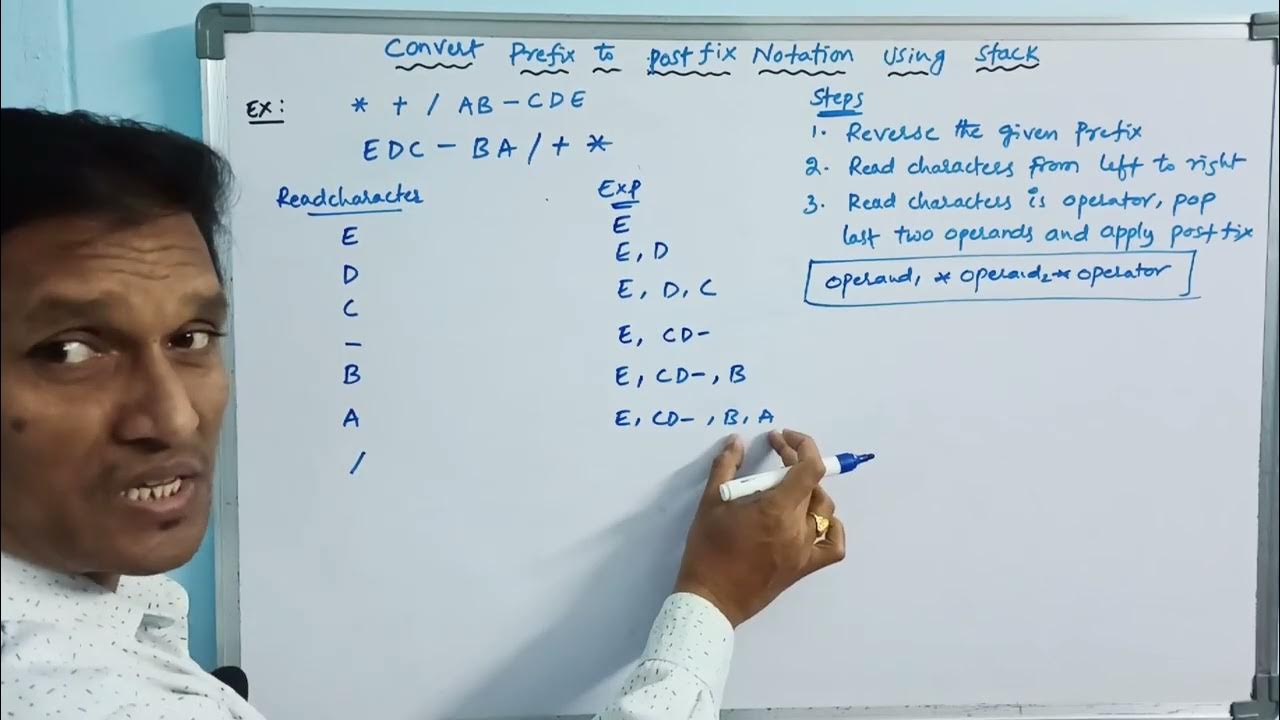 Convert Prefix to postfix Notation using stack
EX: * + / AB - CDE
EDC - BA / + *
Steps
1. Reverse the given Prefix
2. Read characters from left to right
3. Read characters is operator, pop
last two operands and apply postfix
operand1 * operand2 * operator
Readcharacter Exp
E E
D E, D
C E, D, C
- E, CD-
B E, CD-, B
A E, CD-, B, A
/